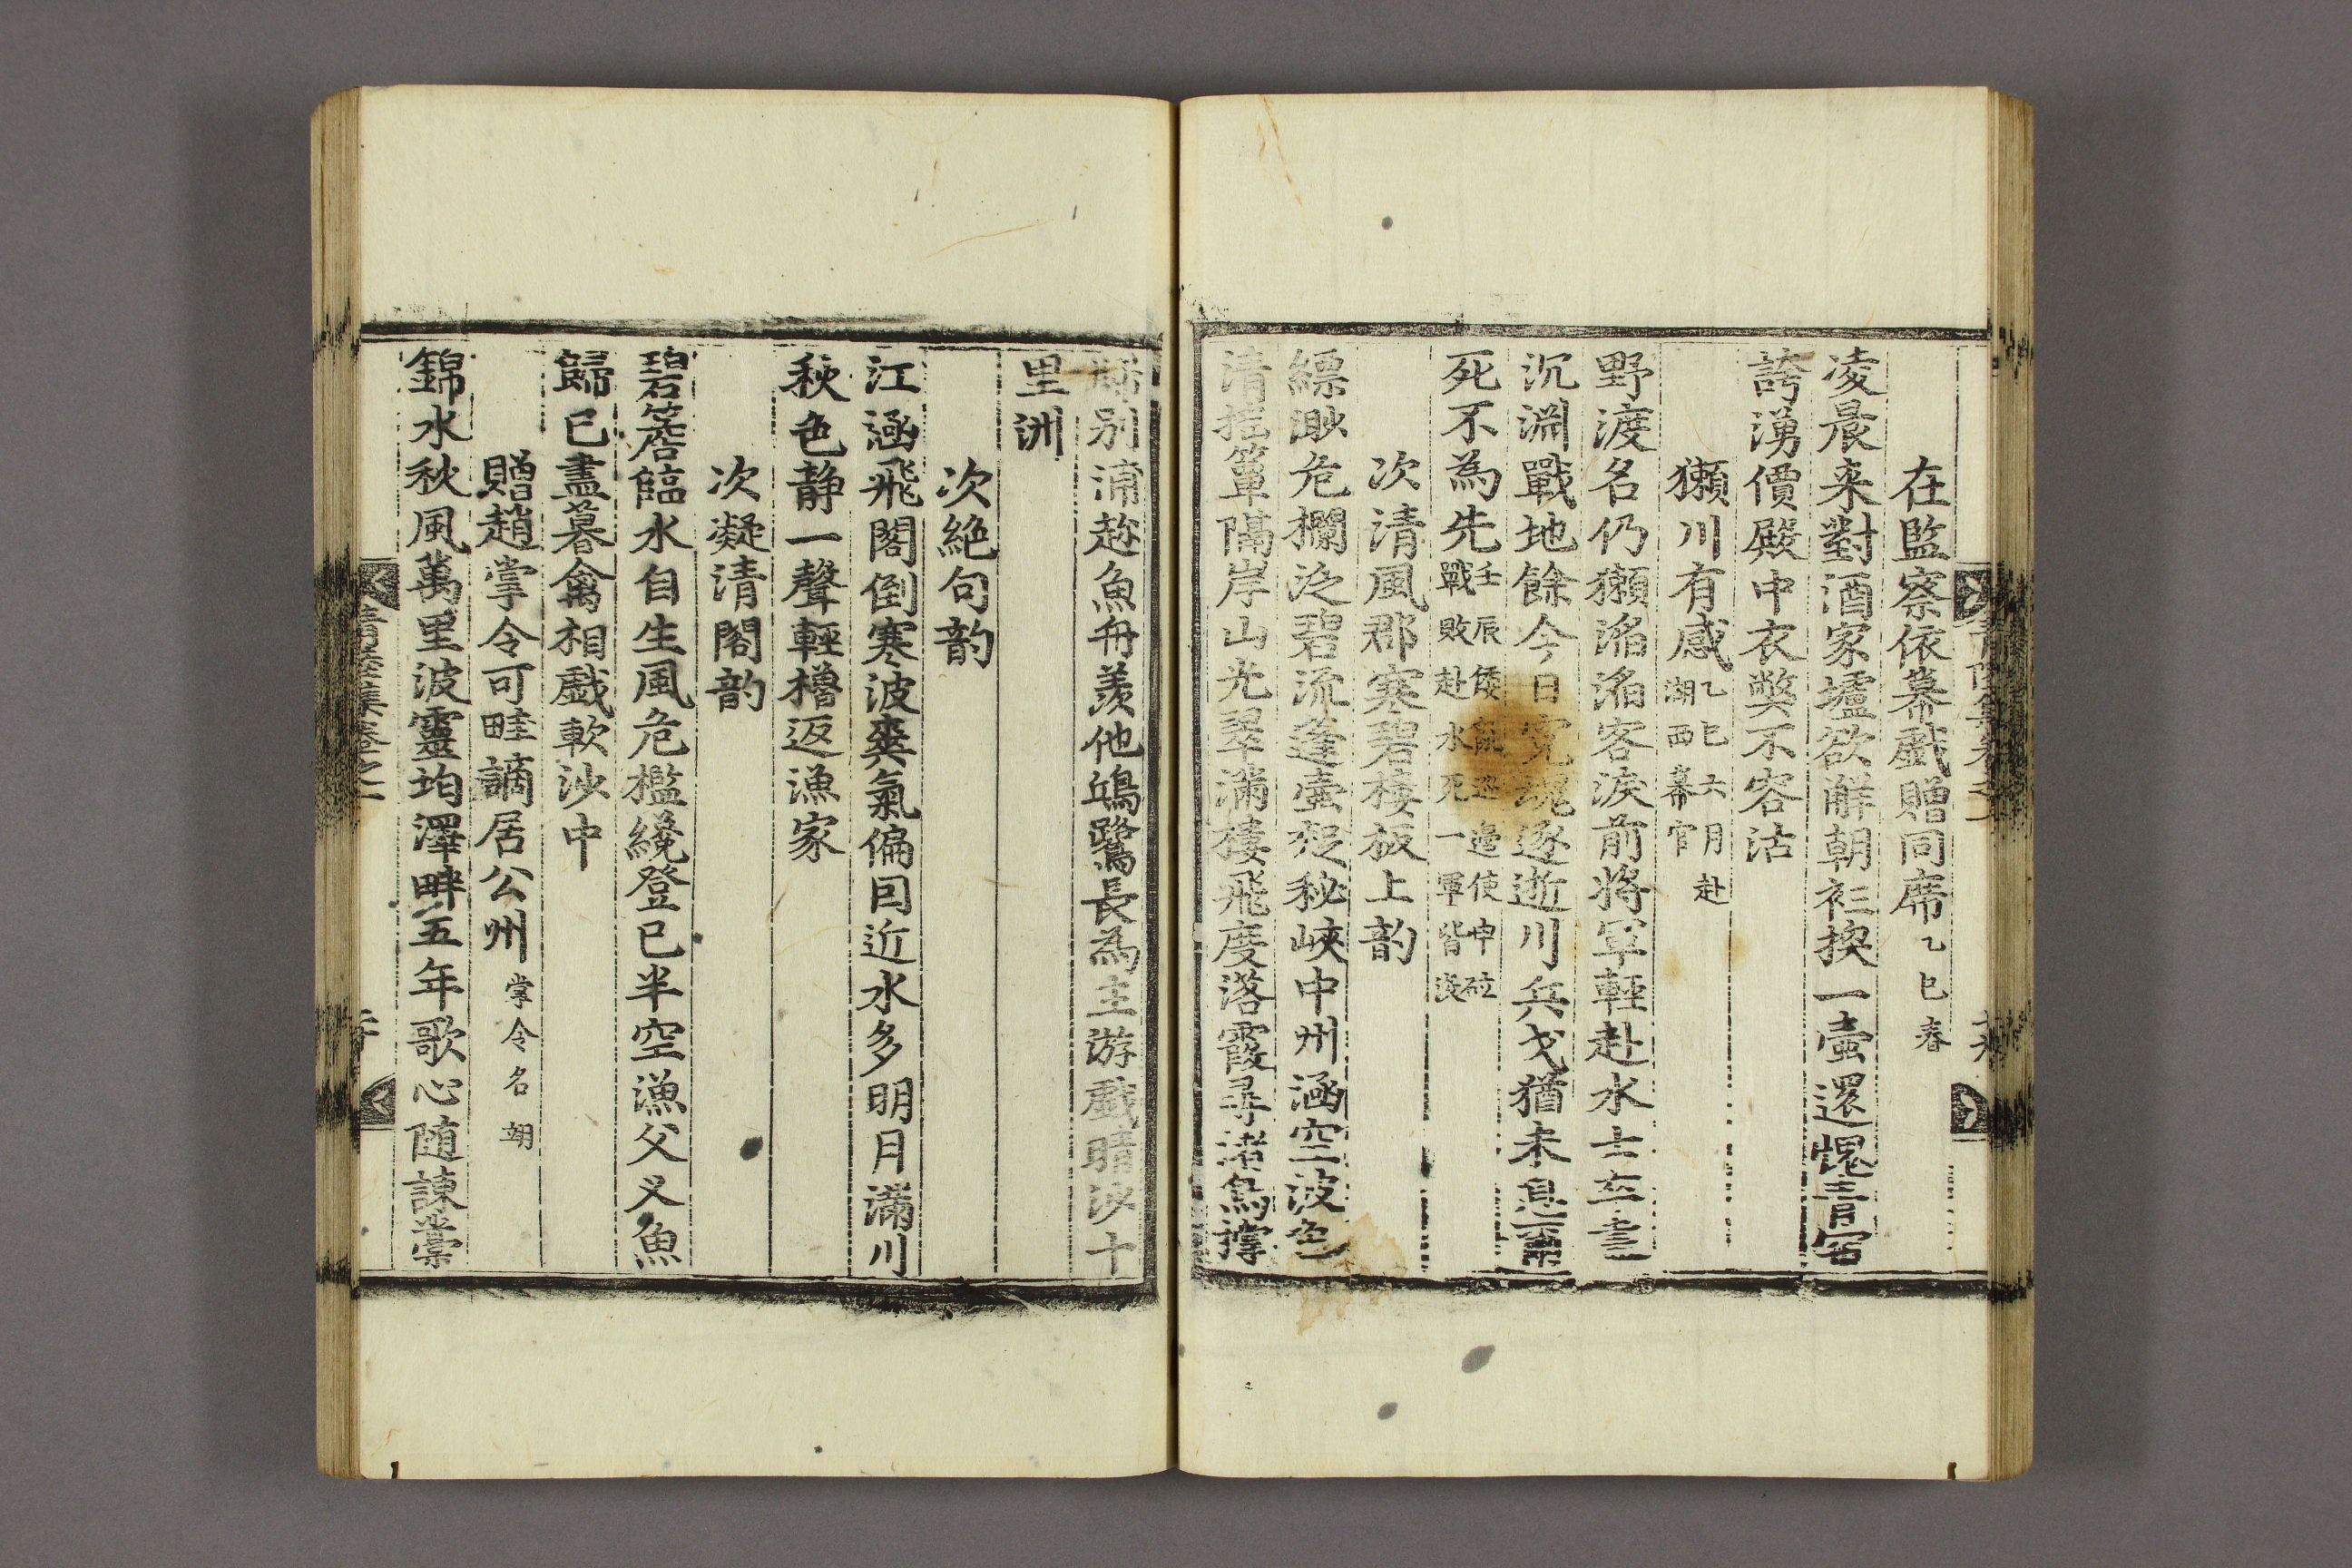 在監察依幕戲贈同席乙巳春
凌晨来對酒家壚欲觧朝衫換一壷還愧青
誇湧價殿中衣獘不容沽
獺川有感乙巳六月赴湖西幕官
野渡名仍獺滔滔客淚前将军輕赴水士卒盡
沉淵戰地餘今日寃魂逐逝川兵戈猶未息
死不為先壬辰倭亂巡邉使申砬戰敗赴水死一軍皆没
次清風郡寒碧楼板上韵
縹渺危欄泛碧流蓬壷起秘峽中州涵空波色
清揺簟隔岸山光翠满楼飛度落霞尋渚鳥撑
歸别浦趂魚舟羡他鴟鷺長為主游戲晴波十
里洲
次絶句韵
江涵飛閣倒寒波爽氣偏囙近水多明月满川
秋色静一聲輕櫓返漁家
次凝清閣韵
碧簷臨水自生風危檻纔登已半空漁父义魚
歸已盡暮禽相戱軟沙中
贈趙掌令可畦謫居公州掌令名翊
錦水秋風萬里波靈均澤畔五年歌心随諌
青陸集卷之二